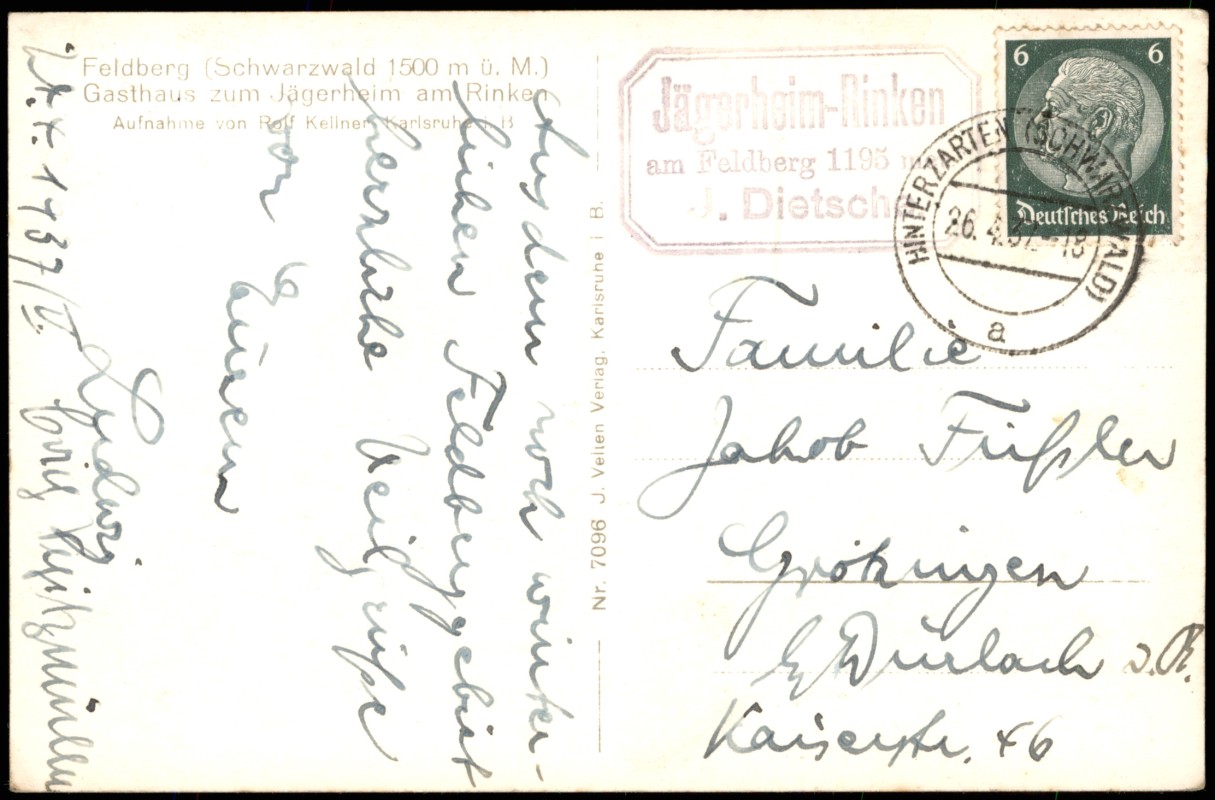 Feldberg (Schwarzwald 1500 m ü. M.)
Gasthaus zum Jägerheim am Rinken
Aufnahme von Rolf Kellner, Karlsruhe i. B
24. 4. 1937
Aus dem noch winter-
lichen Feldberggebiet
herzliche
von Eurem
Ludwig
Nr. 7096 J. Velten Verlag, Karlsruhe i B.
Jägerheim-Rinken
am Feldberg 1195 m
J. Dietsche
6 6
Deutsches Reich
HINTERZARTEN (SCHWARZWALD)
26.4.37.-18
a
Familie
Jakob Füßler
Grötzingen
b/ Durlach i. B.
Kaiserstr. 46